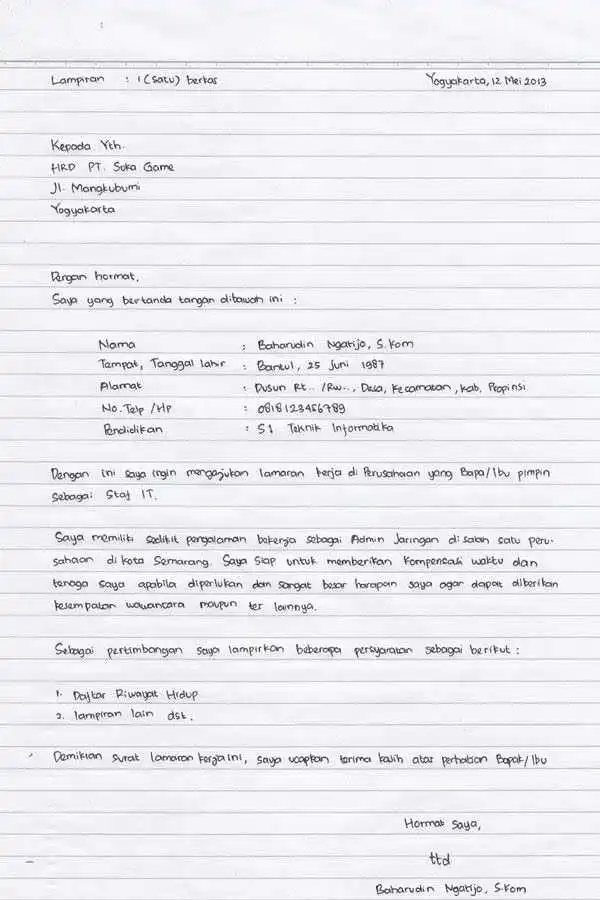 Lampiran : 1 (satu) berkas Yogyakarta, 12 Mei 2013
Kepada Yth.
HRD PT. Suka Game
Jl. Mangkubumi
Yogyakarta
Dengan hormat,
Saya yang bertanda tangan dibawah ini :
Nama : Baharudin Ngatijo, S.Kom
Tempat, Tanggal lahir : Bantul, 25 Juni 1987
Alamat : Dusun Rt.. /Rw.., Desa, Kecamatan, kab, Propinsi
No. Telp /Hp : 0818123456789
Pendidikan : S1 Teknik Informatika
Dengan ini saya ingin mengajukan lamaran kerja di Perusahaan yang Bapa/Ibu pimpin
sebagai Staf IT.
Saya memiliki sedikit pengalaman bekerja sebagai Admin Jaringan di salah satu peru-
sahaan di kota Semarang. Saya siap untuk memberikan kompensasi waktu dan
tenaga saya apabila diperlukan dan sangat besar harapan saya agar dapat diberikan
kesempatan wawancara maupun tes lainnya.
Sebagai pertimbangan saya lampirkan beberapa persyaratan sebagai berikut :
1. Daftar Riwayat Hidup
2. lampiran lain dst.
Demikian surat lamaran kerja ini, saya ucapkan terima kasih atas perhatian Bapak/Ibu
Hormat Saya,
ttd
Baharudin Ngatijo, S.Kom